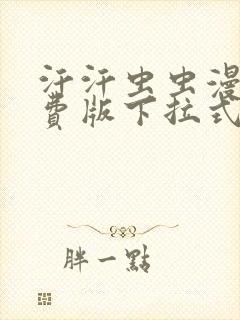 汗汗虫虫漫
费版下拉式
胖一點